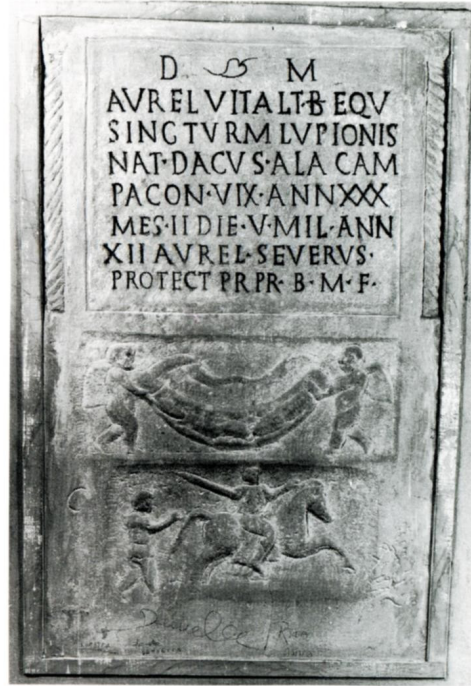 D M
AVREL VITALT·B EQV
SING TVRM LVPIONIS
NAT·DACVS·ALA CAM
PACON·VIX·ANNXXX
MES·II DIE·V·MIL·ANN
XII AVREL·SEVERVS·
PROTECT PR PR· B·M·F·